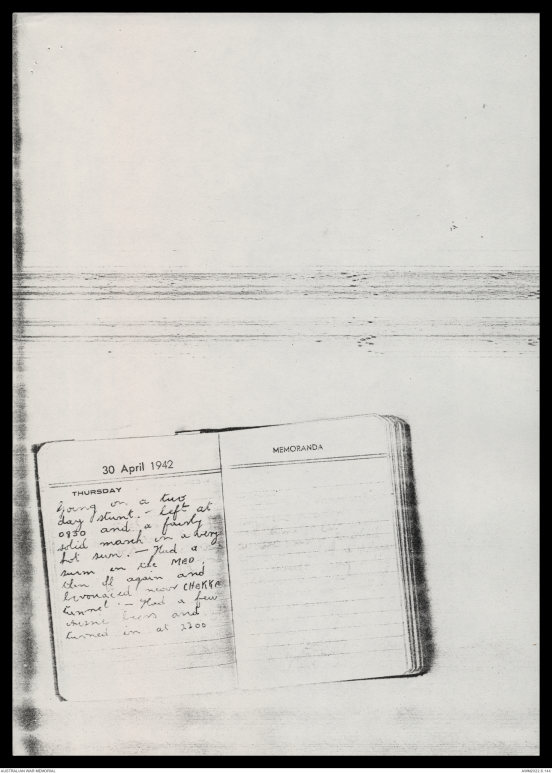 30 April 1942
THURSDAY
Going on a two
day stunt. - Left at
0830 and a fairly
solid march in a very
hot sun. - Had a
swim in the MED.
then off again and
bivouaced near CHEKKA
tunnel. - Had a few
beers and
turned in at 2300
MEMORANDA
AUSTRALIAN WAR MEMORIAL